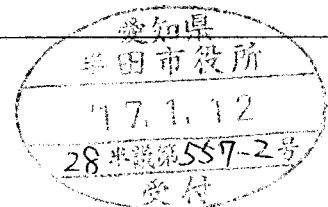 愛知県
半田市役所
'17.1.12
28半議第557-2号
受付